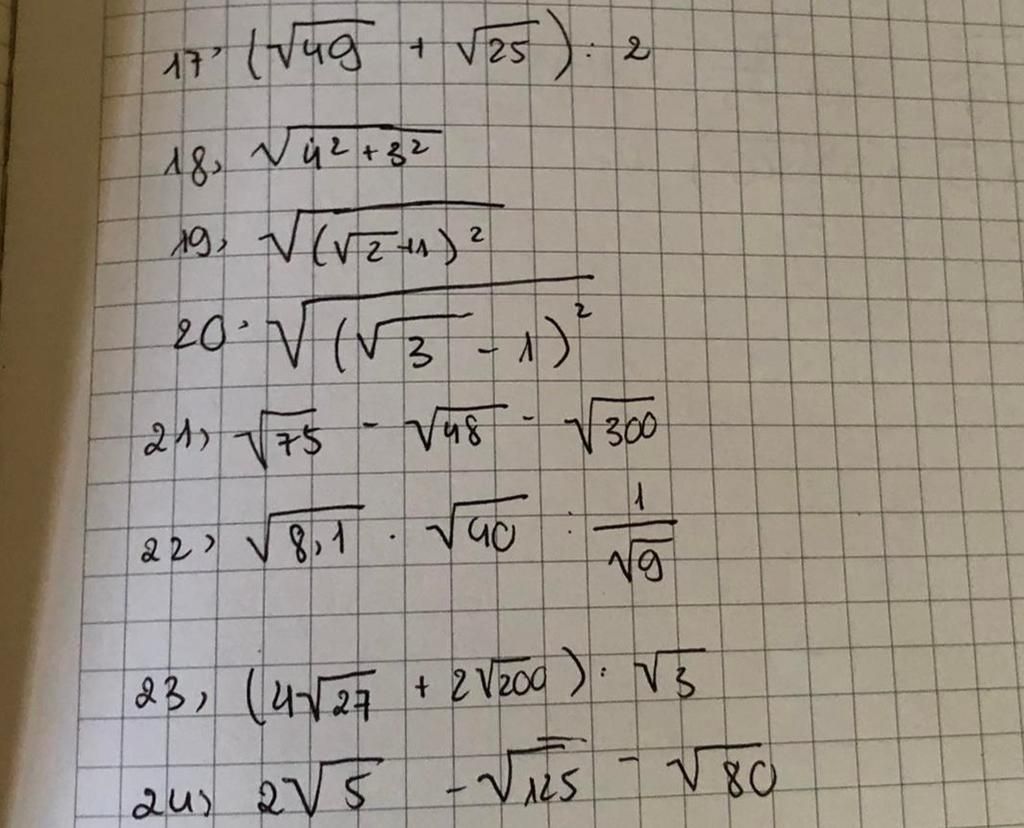 17, (√49 + √25) : 2
18, √(4² + 3²)
19, √((√2 + 1)²)
20. √((√3 - 1)²)
21, √75 - √48 - √300
22, √8,1 · √40 : 1/√9
23, (4√27 + 2√200) : √3
24, 2√5 - √125 - √80